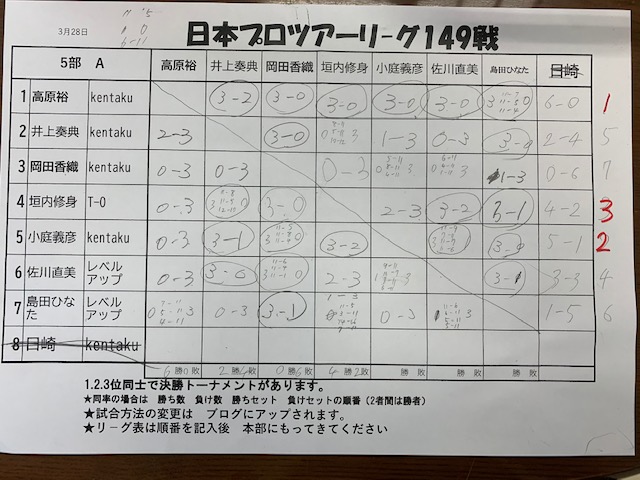 3月28日
日本プロツアーリーグ149戦
5部 A 高原裕 井上奏典 岡田香織 垣内修身 小庭義彦 佐川直美 島田ひなた 日崎
1 高原裕 kentaku 3-2 3-0 3-0 3-0 3-0 3 0 6-0 1
2 井上奏典 kentaku 2-3 3-0 0 3 1-3 0-3 3-0 2-4 5
3 岡田香織 kentaku 0-3 0-3 0-3 0 3 0 3 1-3 0-6 7
4 垣内修身 T-0 0-3 3 0 3-0 2-3 3-2 3-1 4-2 3
5 小庭義彦 kentaku 0-3 3-1 3 0 3-2 3 1 3-0 5-1 2
6 佐川直美 レベルアップ 0-3 3-0 3 0 2-3 1 3 3-1 3-3 4
7 島田ひなた レベルアップ 0 3 0-3 3-1 1-3 0-3 1 3 1-5 6
8 日崎 kentaku
6勝0敗 2勝4敗 0勝6敗 4勝2敗 勝敗 勝敗 勝敗
1.2.3位同士で決勝トーナメントがあります。
★同率の場合は 勝ち数 負け数 勝ちセット 負けセットの順番（2者間は勝者）
★試合方法の変更は ブログにアップされます。
★リーグ表は順番を記入後 本部にもってきてください